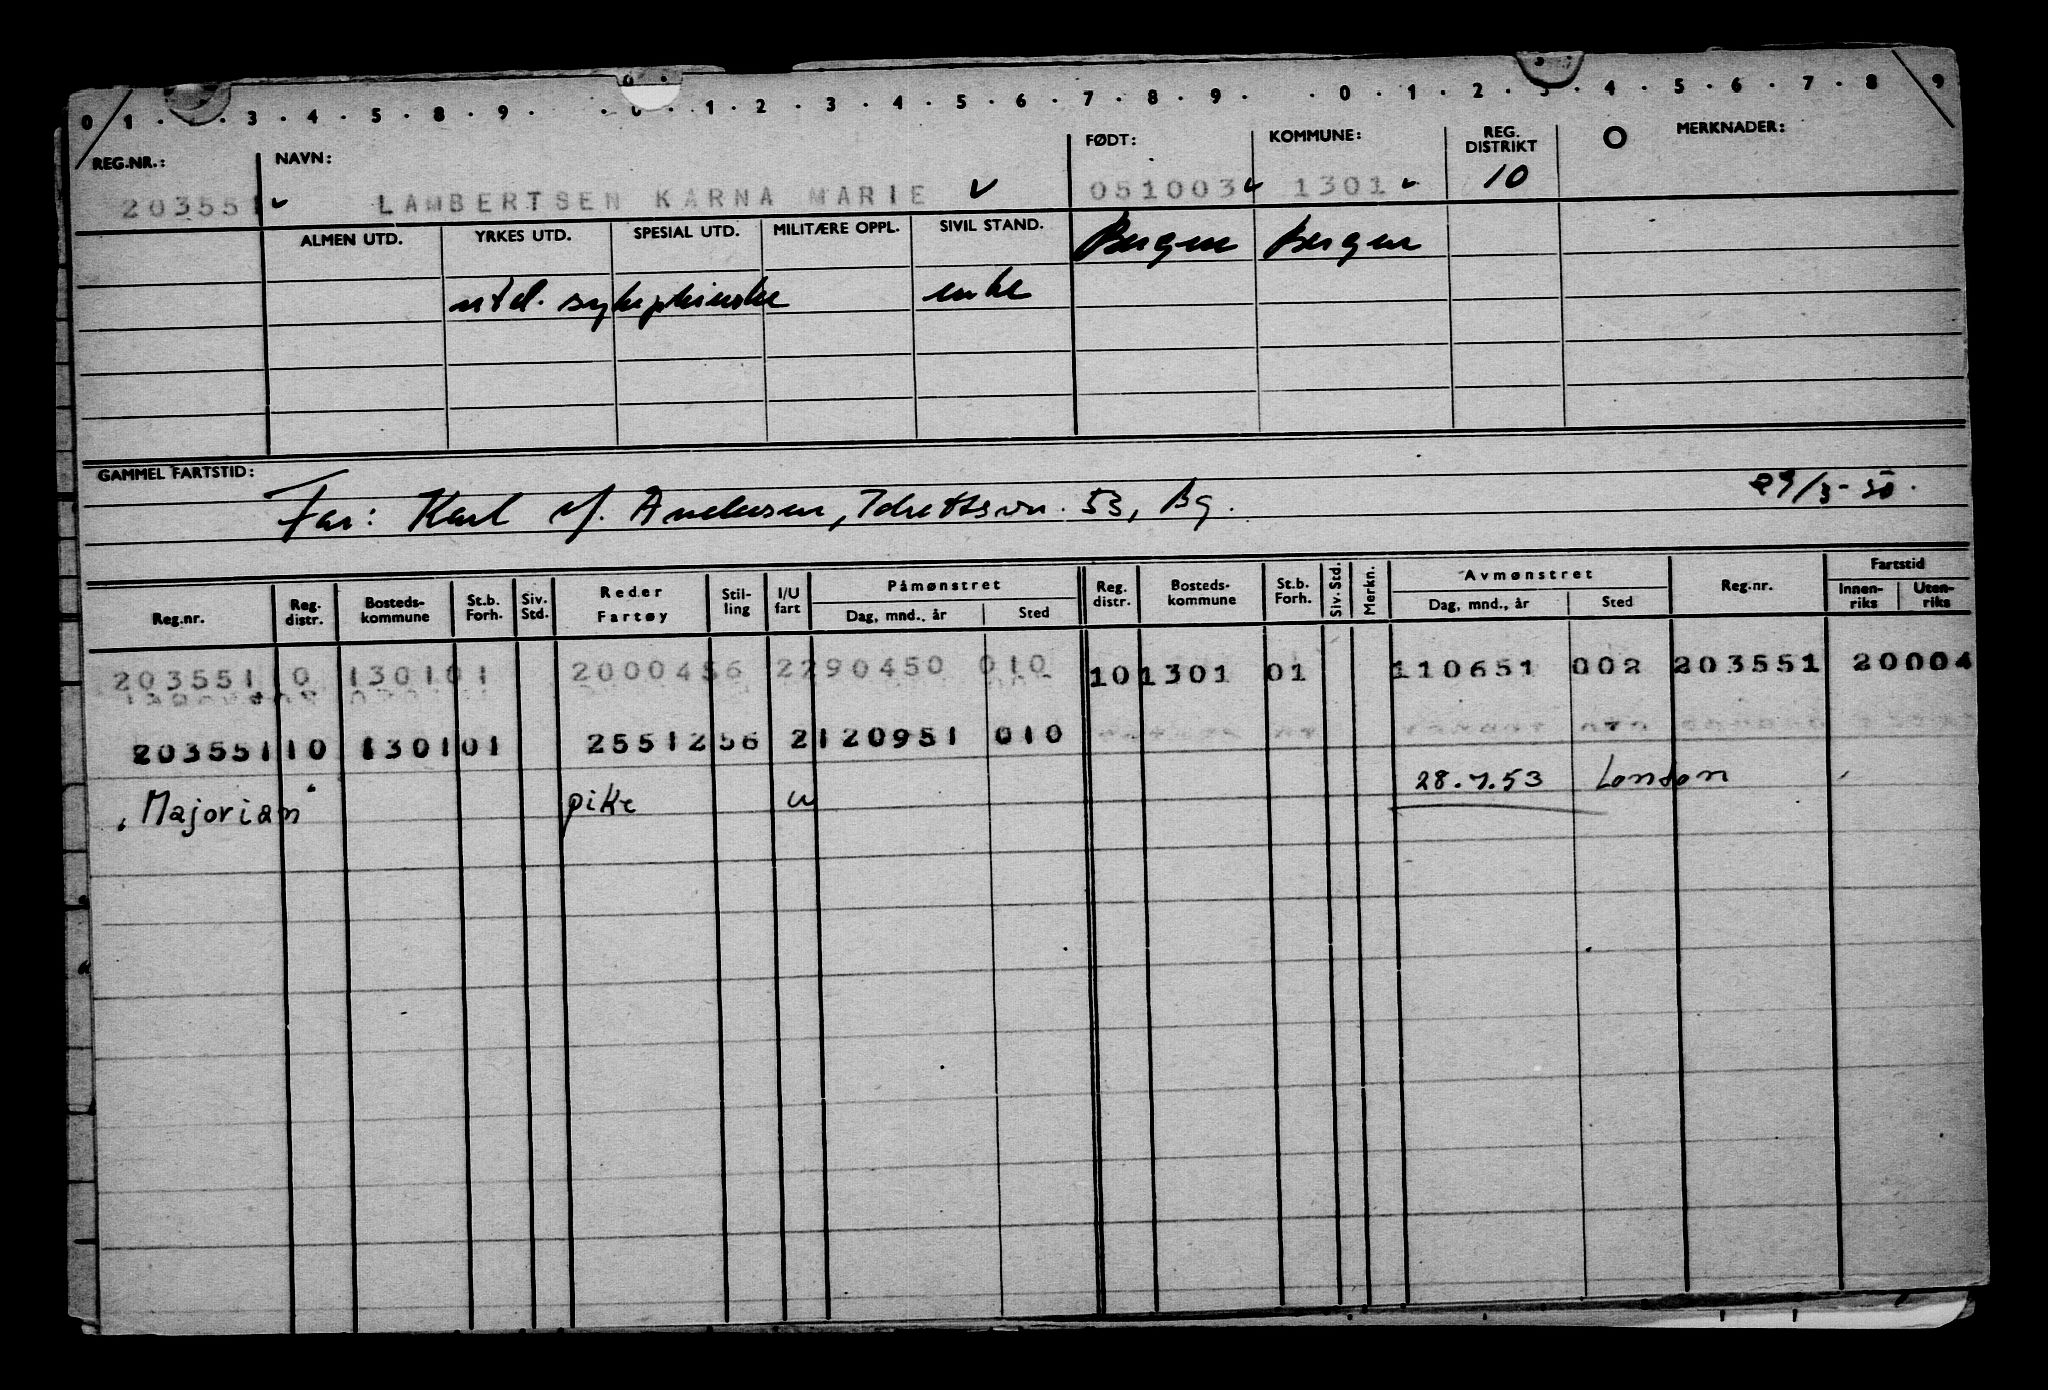 0 1 . . 3 . 4 . 5 . 8 . 9 . . 0 . 1 . 2 . 3 . 4 . 5 . 6 . 7 . 8 . 9 . . 0 . 1 . 2 . 3 . 4 . 5 . 6 . 7 . 8 9
REG.NR.: NAVN: FØDT: KOMMUNE: REG. DISTRIKT O MERKNADER:
203551 LAMBERTSEN KARNA MARIE 051003 1301 10
ALMEN UTD. YRKES UTD. SPESIAL UTD. MILITÆRE OPPL. SIVIL STAND. Bergen Bergen
utd. sykepleierske enke
GAMMEL FARTSTID: 29/3-50.
Far: Karl M. Andersen, Idrettsvn. 53, Bg.
Reg.nr. Reg. distr. Bosteds-kommune St.b. Forh. Siv. Std. Reder Fartøy Stil-ling I/U fart Påmønstret Dag, mnd., år Sted Reg. distr. Bosteds-kommune St.b. Forh. Siv. Std. Merkn. Avmønstret Dag, mnd., år Sted Reg.nr. Fartstid Innen-riks Uten-riks
203551 10 1301 01 20004 56 2 290450 010 10 1301 01 110651 002 203551 20004
203551 10 1301 01 25512 56 2 120951 010
"Majorian" pike u 28.7.53 London